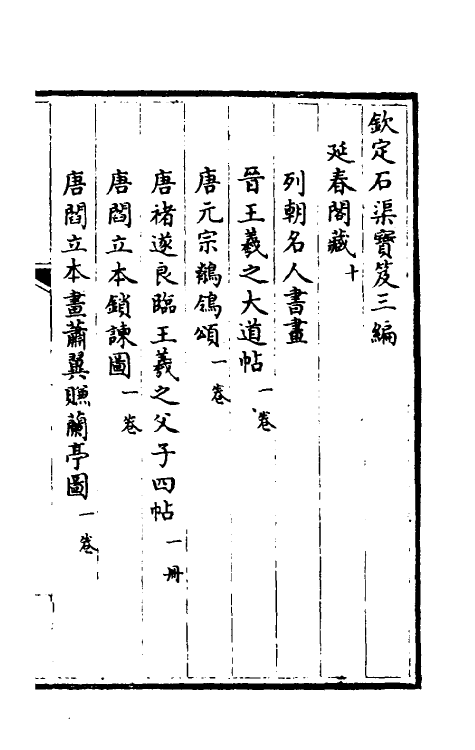 欽定石渠寶笈三編
延春閣藏十
列朝名人書畫
晉王羲之大道帖一卷
唐元宗鶺鴒頌一卷
唐褚遂良臨王羲之父子四帖一冊
唐閻立本鎖諫圖一卷
唐閻立本畫蕭翼賺蘭亭圖一卷